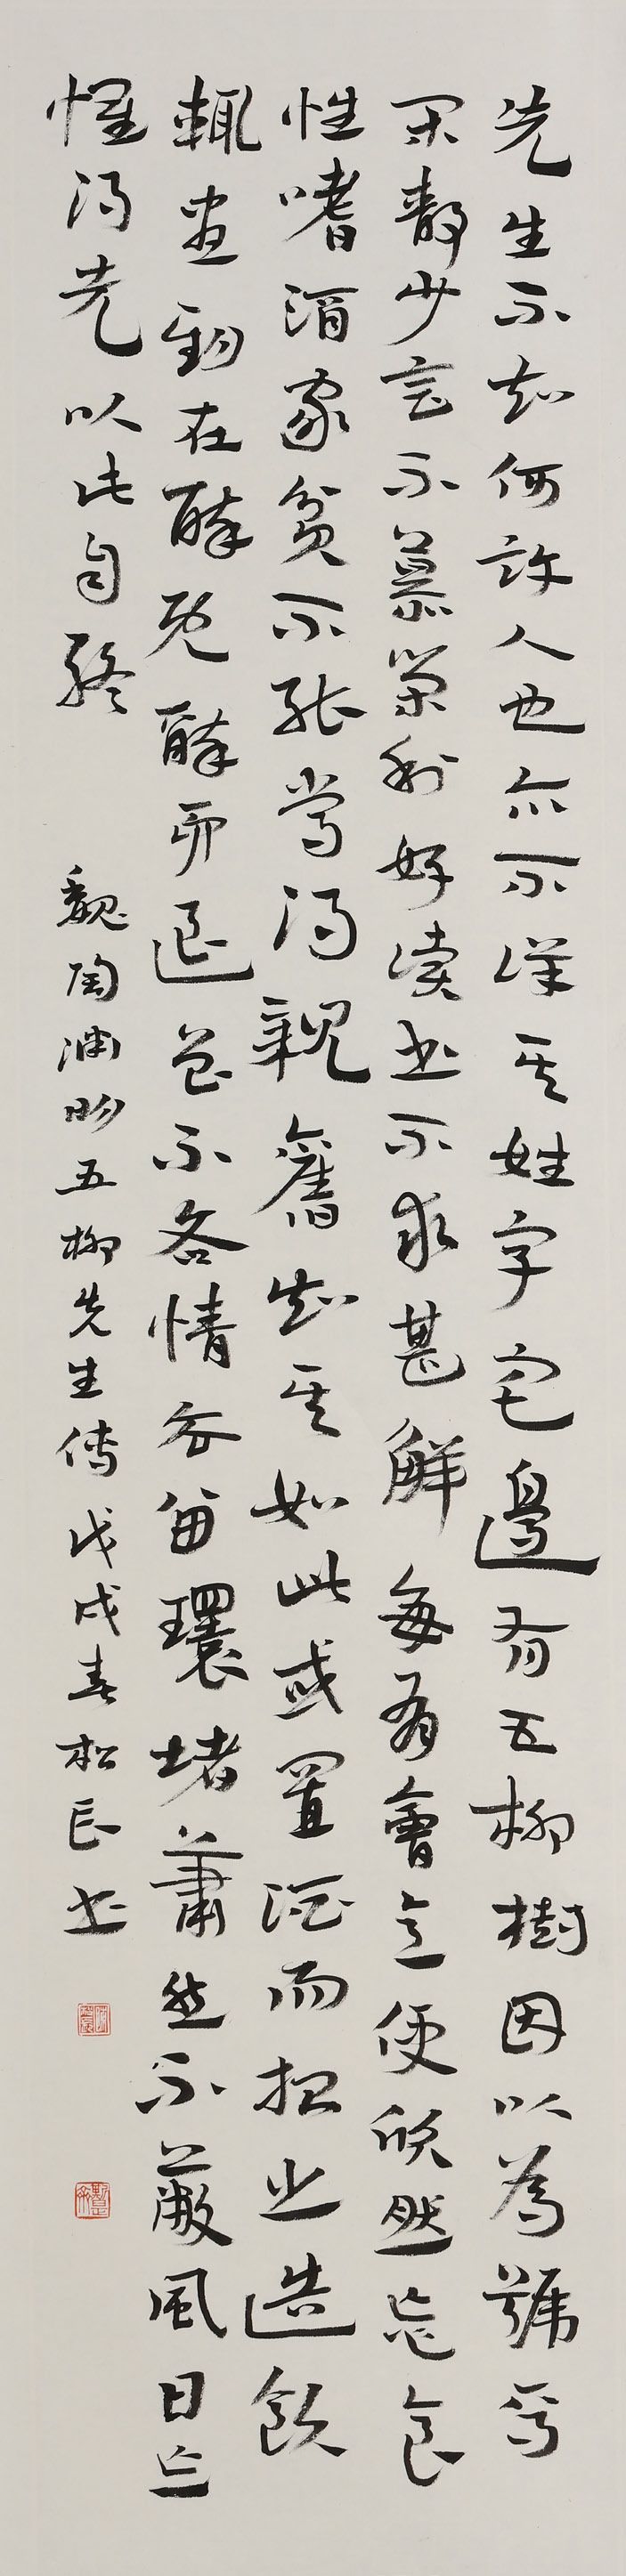 先生不知何許人也亦不詳其姓字宅邊有五柳樹因以為號焉
閑靜少言不慕榮利好讀書不求甚解每有會意便欣然忘食
性嗜酒家貧不能常得親舊知其如此或置酒而招之造飲
輒盡期在醉既醉而退曾不吝情去留環堵蕭然不蔽風日亡
懷得失以此自終
魏陶淵明五柳先生傳戊戌春松書